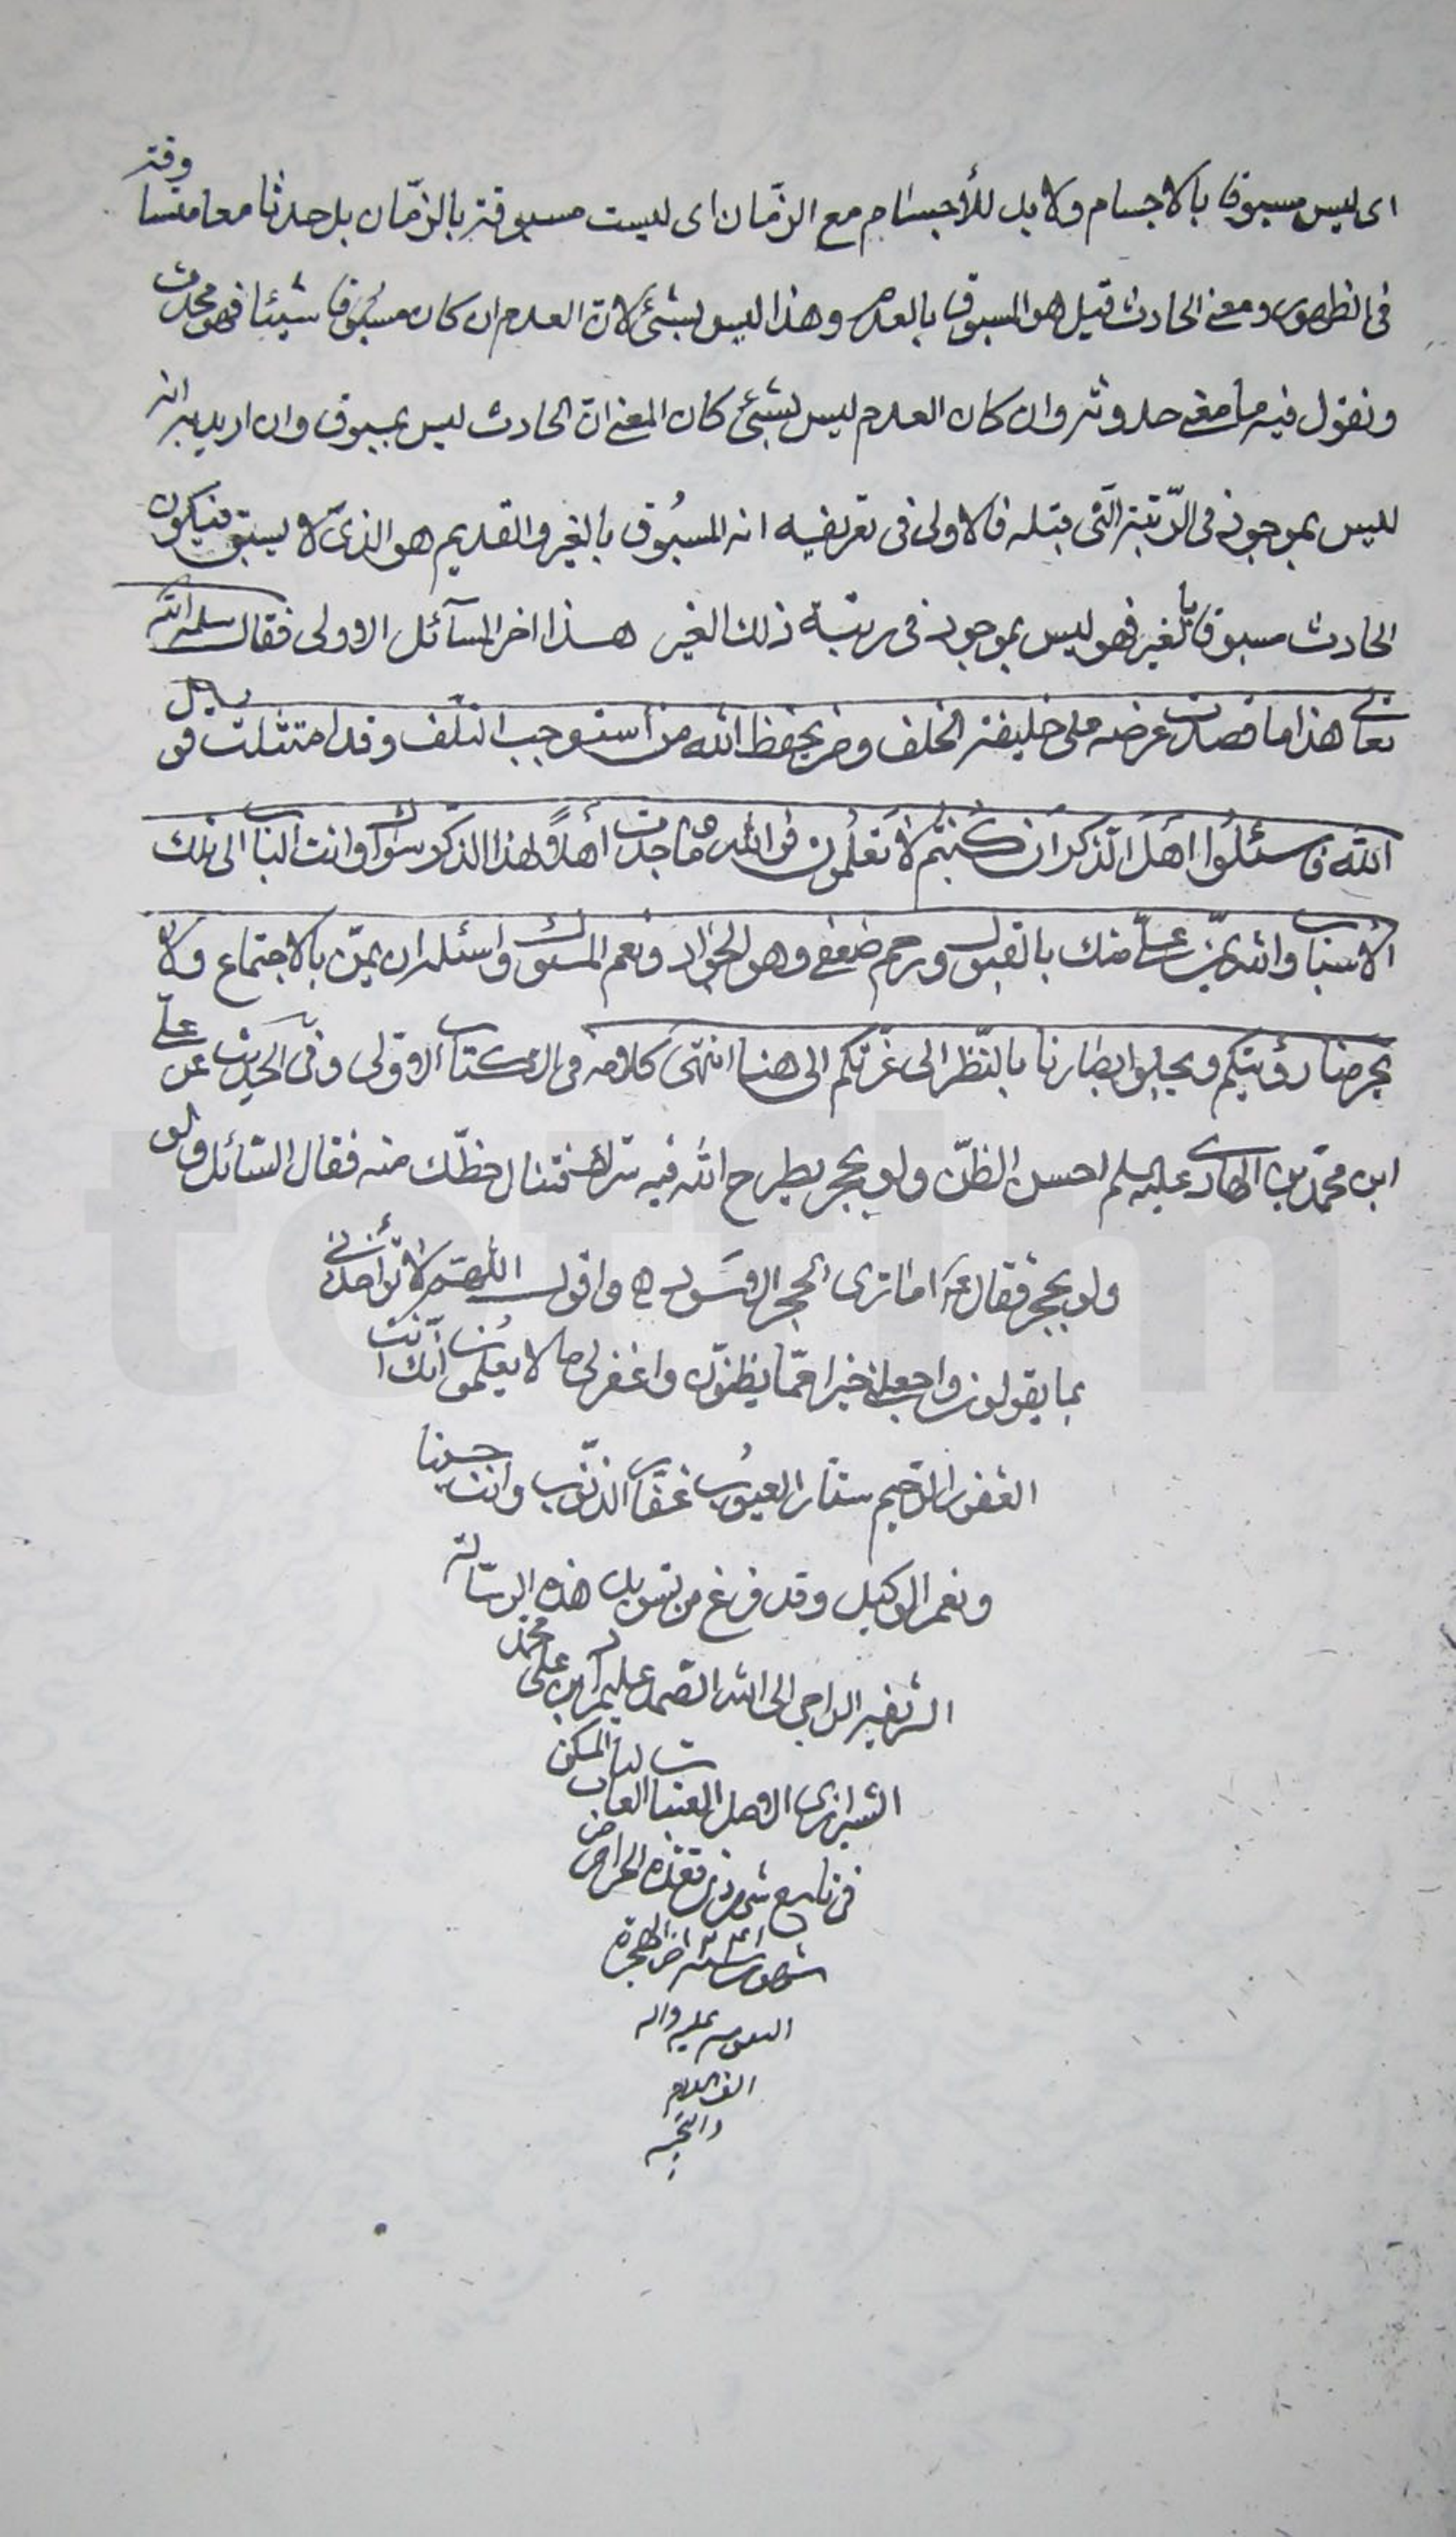 اى ليس مسبوقا بالاجسام ولا بل للأجسام مع الزّمان اى ليست مسبوقة بالزّمان بل حدثا معا متساوقة
فى الظهور ومعنى الحادث قيل هو المسبوق بالعدم وهذا ليس بشئ لانّ العدم ان كان مسبُوقا شيئا فهو محدث
ونقول فيه ما معنى حدوثه وان كان العدم ليس بشئ كان المعنى انّ الحادث ليس بمسبوق وان اريد به انه
ليس بموجود فى الرّتبة الّتى قبله فالاولى فى تعريفه انه المسبُوق بالغير والقديم هو الذىّ لا يسبق فيكون
الحادث مسبوقا بالغير فهو ليس بموجود فى رتبة ذلك الغير هذا اخر المسآئل الاولى فقال سلمه الله
تعالى هذا ما قصدت عرضه على خليفة الخلف ومن يحفظ الله من استوجب التلف وقد امتثلت قول
الله فاسئلُوا اَهلَ الذكر ان كُنتُم لا تَعلَمُون فو الله ما وجدت أهلاً لهذا الذكر سواك وانت الباب الى ذلك
الاسباب والله يمنّ علىّ منك بالقبول ورحم ضعفى وهو الجواد ونعم المسئول واسئله ان يمنّ بالاجتماع ولا
يحرمنا رؤيتكم ويجلو ابصارنا بالنّظر الى غرّتكم الى هنا انتهى كلامه فى الكتاب الاولى وفى الحديث عن علىّ
ابن محمّد بن الهادى عليه السلم احسن الظنّ ولو بحجر يطرح الله فيه سرّه فتنال حظّك منه فقال السّائل ولو
ولو بحجر فقال اما ترى الحجر الاسود واقول اللّهمّ لا تؤاخذنى
بما يقولون واجعلنى خيرا ممّا يظنّون واغفر لى ما لا يعلمُون انّك انت
الغفور الرّحيم ستّار العيُوب غفّار الذنوب وانت حسبنا
ونعم الوكيل وقد فرغ من تسويد هذه الرسالة
الراجى الى الله الصّمد ابن على محمد
الشيرازى الاصل المسكن
فى تاسع شهر ذى قعدة الحرام من
شهور سنة من الهجرة
عليه واله
الف
والتحية